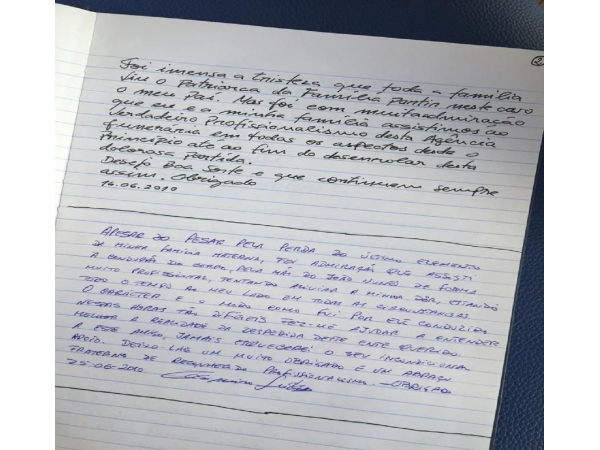 2
Foi imensa a tristeza que toda a família
viu o Patriarca da Família Partir neste caso
o meu Pai. Mas foi com muita admiração
que eu e a minha família assistimos ao
verdadeiro Profissionalismo desta Agência
funerária em todos os aspectos desde o
Princípio até ao fim do desenrolar desta
dolorosa Partida.
Desejo Boa Sorte e que continuem sempre
assim. Obrigado
16.06.2010
APESAR DO PESAR PELA PERDA DO ÚLTIMO ELEMENTO
DA MINHA FAMÍLIA MATERNA, FOI ADMIRAÇÃO QUE ASSISTI
A CONDUÇÃO DO CORPO, PELA MÃO DO JOÃO NUNES DE FORMA
MUITO PROFISSIONAL, TENTANDO ALIVIAR A MINHA DÔR, ESTANDO
TODO O TEMPO AO MEU LADO EM TODAS AS CIRCUNSTÂNCIAS
O CARÁCTER E O MODO COMO FUI POR ELE CONDUZIDO
NESSAS HORAS TÃO DIFÍCEIS FEZ-ME AJUDAR A ENTENDER
MELHOR A REALIDADE DA DESPEDIDA DESTE ENTE QUERIDO.
A ESSE AMIGO, JAMAIS ESQUECEREI O SEU INCONDICIONAL
APOIO. DEIXO LHE UM MUITO OBRIGADO E UM ABRAÇO
FRATERNO DE PROFISSIONALISMO. — OBRIGADO
25-06-2010